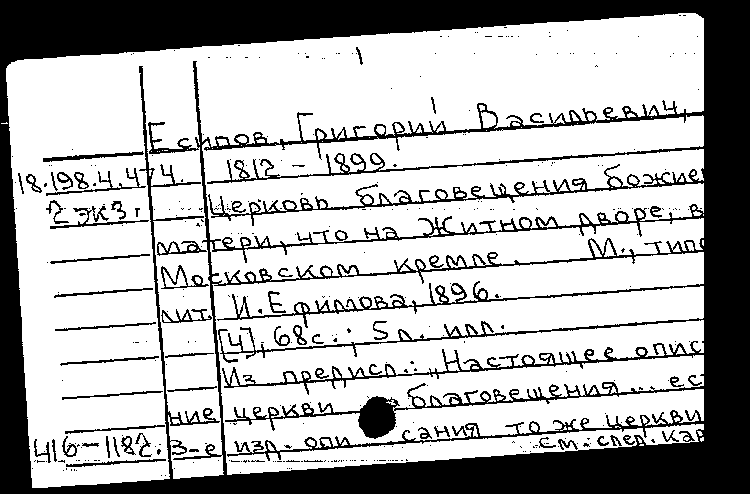 Есипов, Григорий Васильевич,
18.198.4.474. 1812 – 1899.
2 экз. Церковь благовещения божие
матери, что на Житном дворе, в
Московском кремле. М., типо
лит. И. Ефимова, 1896.
[4], 68 с.; 5 л. илл.
Из предисл.: „Настоящее опис
ние церкви благовещения... ес
416–1182. 3-е изд. описания то же церкви
см. след. кар